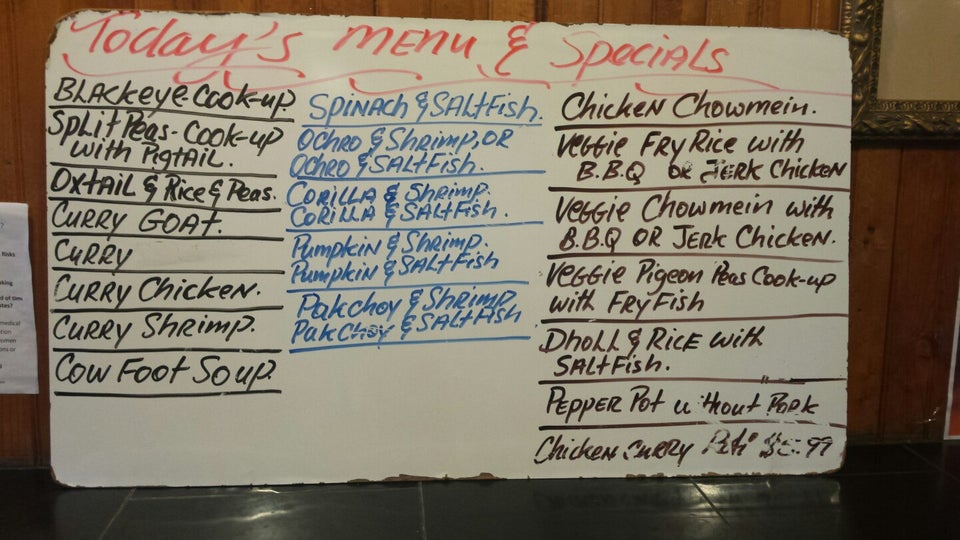 Today's MENU & Specials
BLackeye-Cook-up.
Split Peas-Cook-up
with Pigtail.
Oxtail & Rice & Peas.
Curry Goat.
Curry
Curry Chicken.
Curry Shrimp.
Cow Foot Soup.
Spinach & Saltfish.
Ochro & Shrimp, OR
Ochro & Saltfish.
Corilla & Shrimp.
Corilla & SaltFish.
Pumpkin & Shrimp.
Pumpkin & SaltFish
Pakchoy & Shrimp
PakChoy & SaltFish
Chicken Chowmein.
Veggie Fry Rice with
B.B.Q OR JERK Chicken
Veggie Chowmein with
B.B.Q OR Jerk Chicken.
Veggie Pigeon Peas Cook-up
with Fry Fish
Dholl & Rice with
SaltFish.
Pepper Pot without Pork
Chicken Curry $5.99